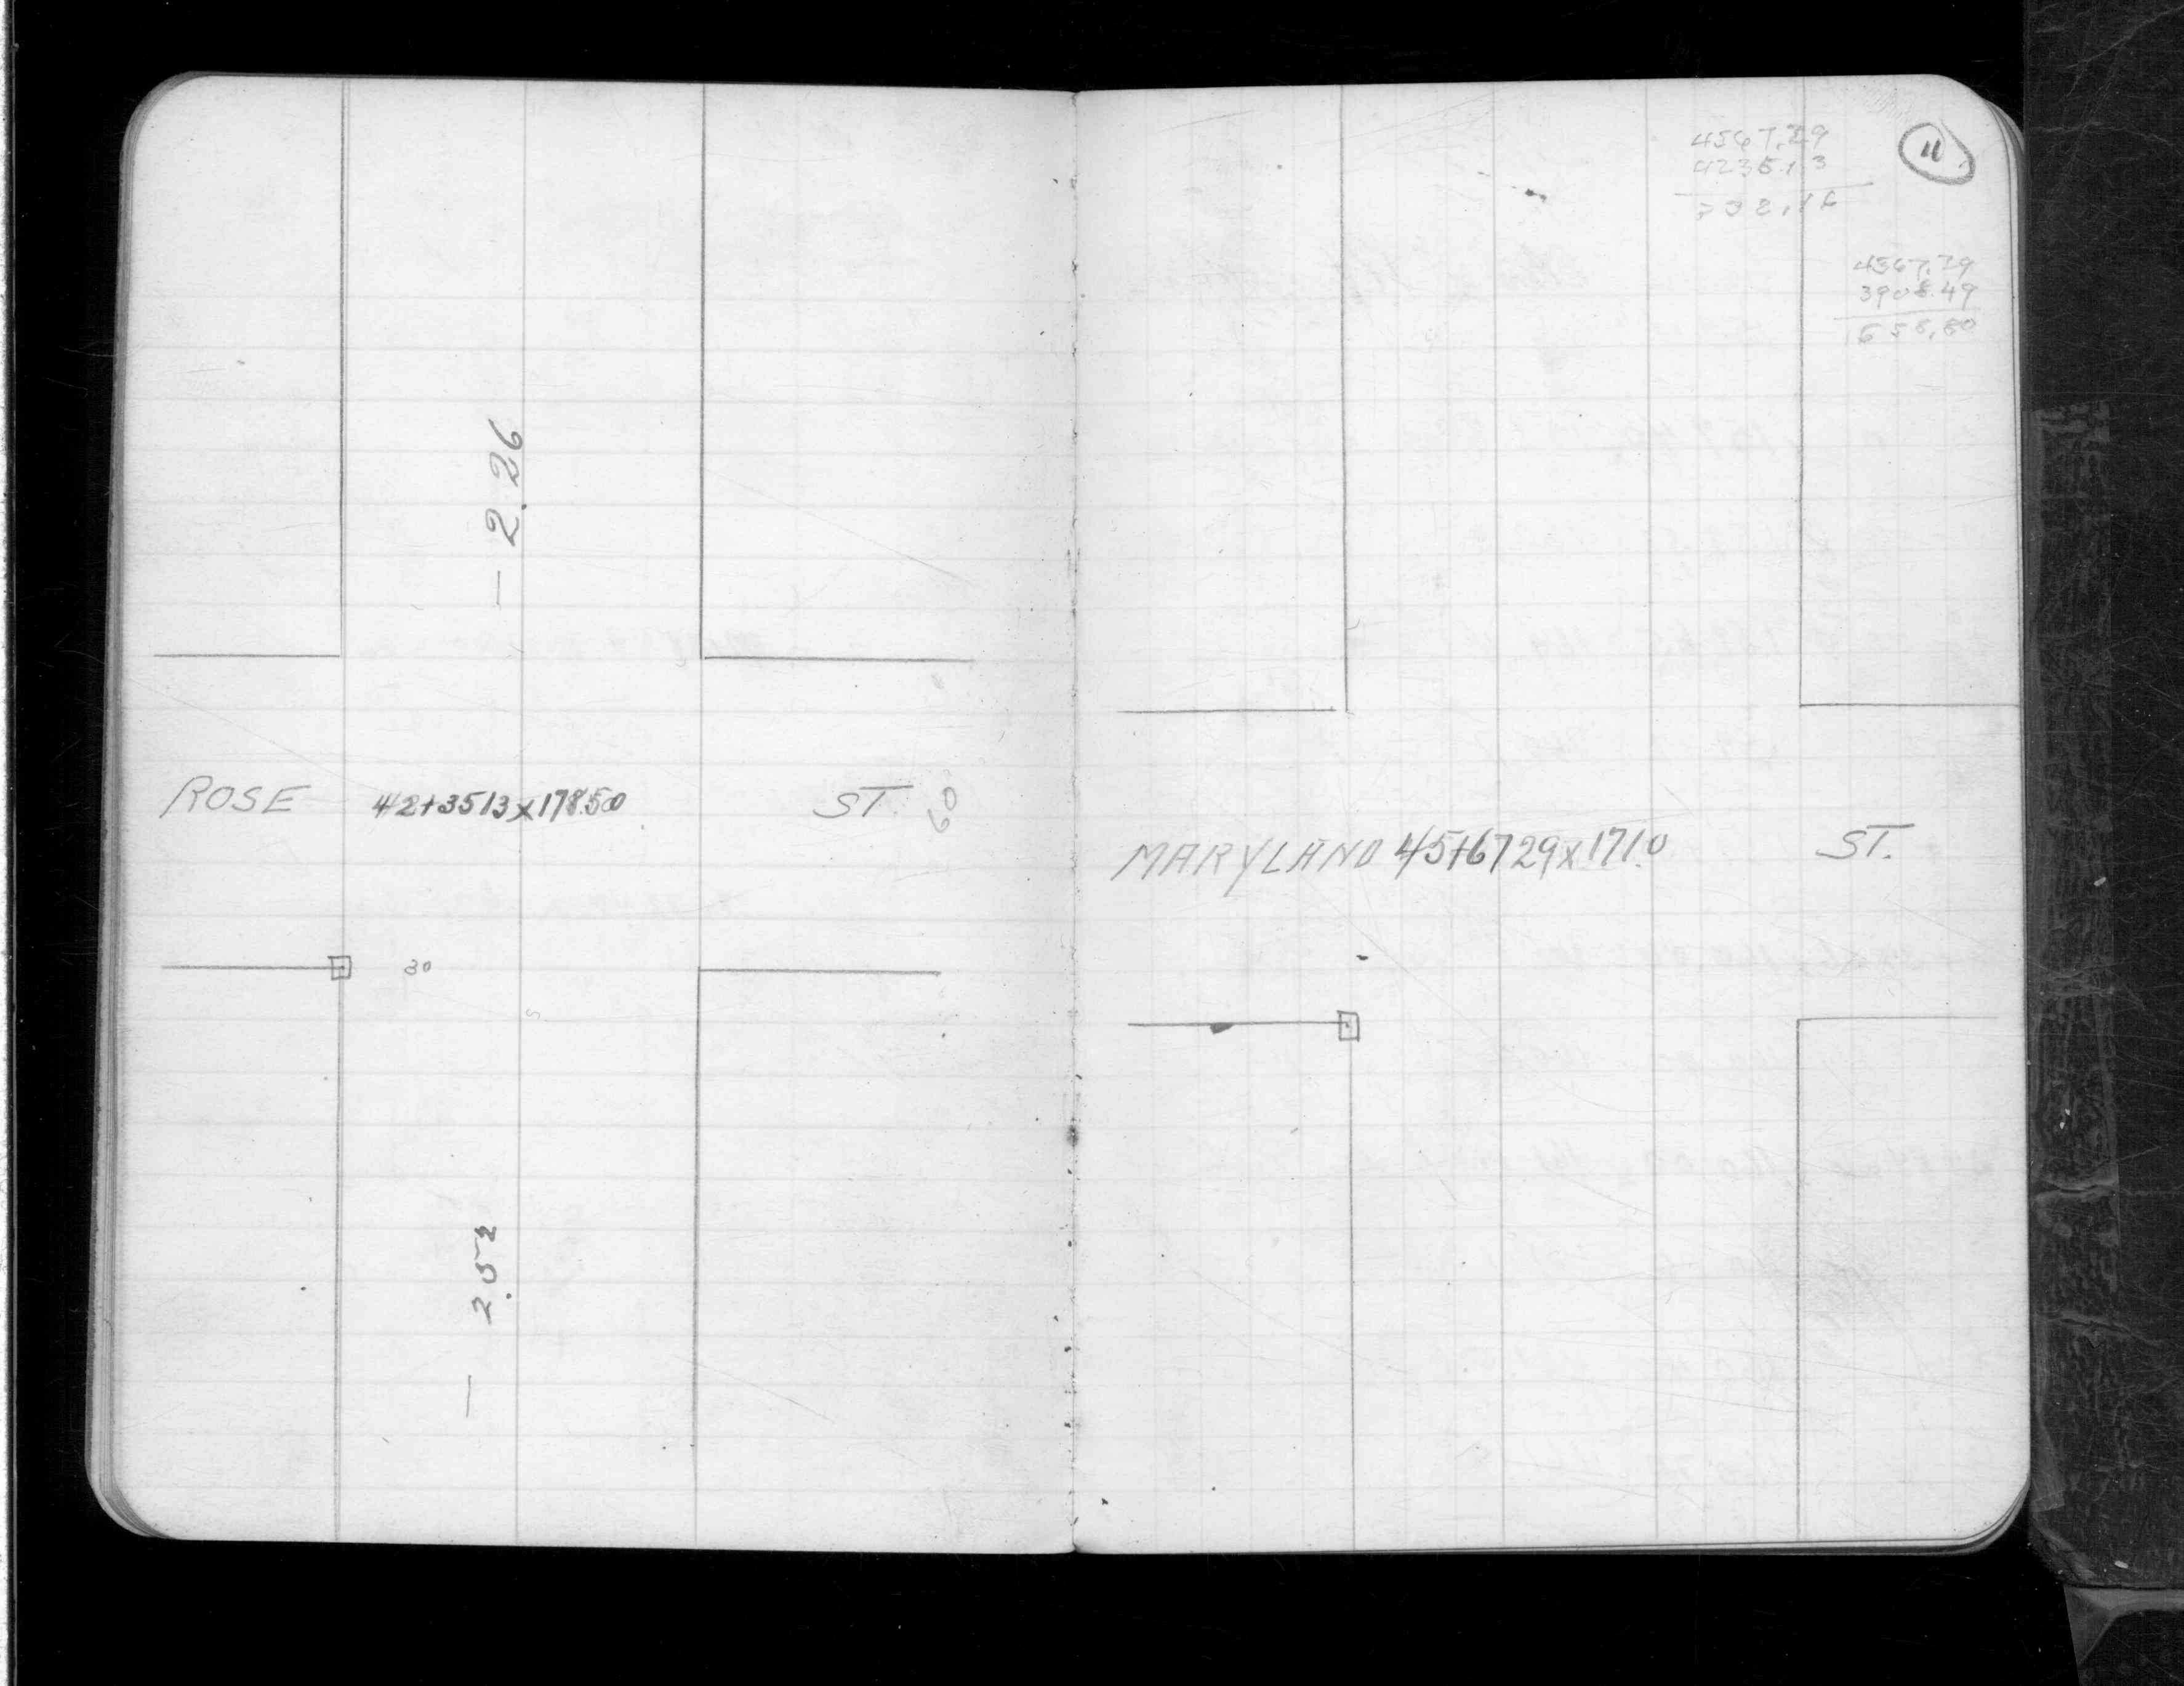 - 2.26
ROSE 42+3513x178.50 ST. 60
30
- 2.02
11
4567.29
4235.13
332.16
4567.29
3908.49
658.80
MARYLAND 45+6729x171.0 ST.